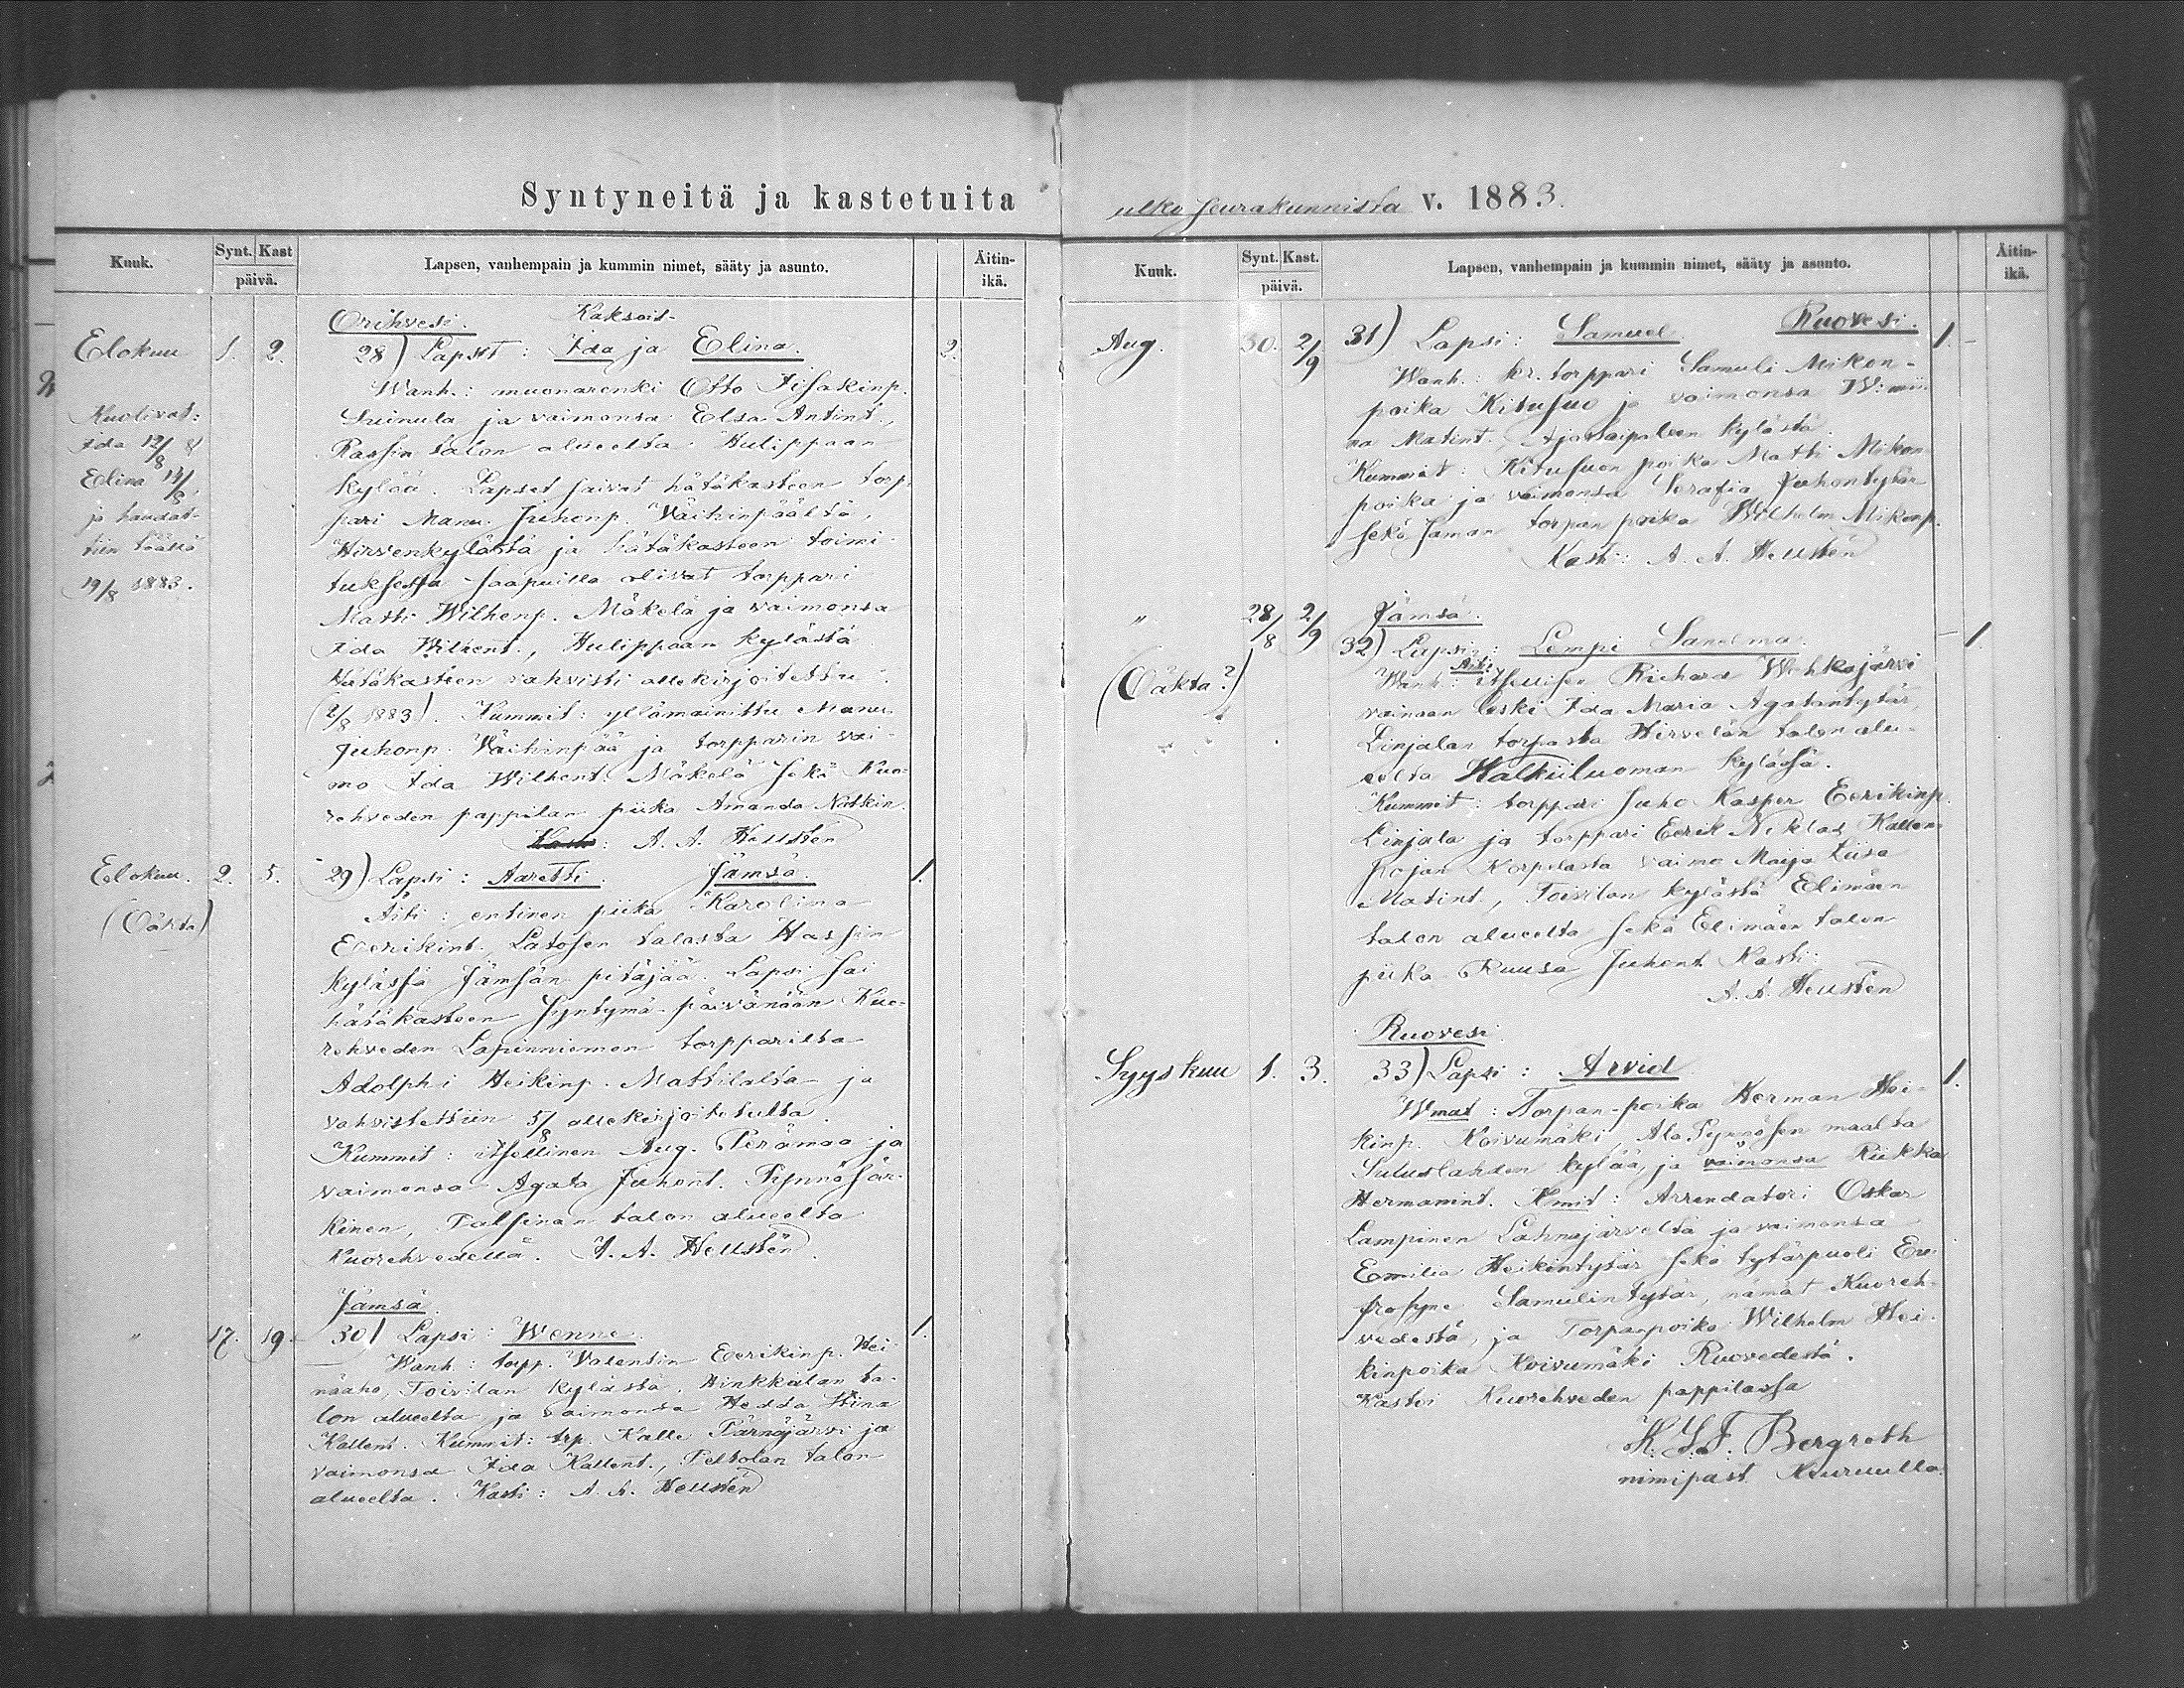 Syntyneitä ja kastetuita
Kuuk.
Synt. Kast
päivä.
Lapsen, vanhempain ja kummin nimet, sääty ja asunto.
Äitin-
ikä.
Orihvesi. Kaksois-
Elokuu 1. 2. 28) Lapset: Ida ja Elina. 2.
Wanh.: muonarenki Otto Iisakinp.
Suinula ja vaimonsa Elsa Antint.,
Rassin talon alueelta Hulippaan
kylää. Lapset saivat hätäkasteen torp-
pari Manu Juhonp. Väihinpäältä,
Hirvenkylästä ja hätäkasteen toimi-
tuksessa saapuilla olivat torppari
Matti Wilhenp. Mäkelä ja vaimonsa
Ida Wilhent., Hulippaan kylästä
Hätäkasteen vahvisti allekirjoitettu
(2/8 1883). Kummit: yllämainittu Manu
Juhonp. Väihinpää ja torpparin vai-
mo Ida Wilhent. Mäkelä sekä Kuo-
rehveden pappilan piika Amanda Natkin.
Kasti: A. A. Hellstén
Kuolivat:
Ida 12/8
Elina 14/8
ja haudat-
tiin täällä
19/8 1883.
Elokuu. 2. 5. 29) Lapsi: Aaretti. Jämsä. 1.
(Oäkta)
Äiti: entinen piika Karolina
Eerikint. Latosen talasta Hassin
kylässä Jämsän pitäjää. Lapsi sai
hätäkasteen syntymä-päivänään Kuo-
rehveden Lapinniemen torpparilta
Adolphi Heikinp. Mattilalta ja
vahvistettiin 5/8 allekirjoitetulta.
Kummit: itsellinen Aug. Perämaa ja
vaimonsa Agata Juhont. Pynnösär-
kinen, Palsinan talon alueelta
Kuorehvedellä. A. A. Hellstén.
Jämsä.
" 17. 19. 30) Lapsi: Wenne. 1.
Wanh.: torpp. Valentin Eerikinp. Hei
näaho, Toivilan kylästä, Hinkkalan ta-
lon alueelta ja vaimonsa Hedda Stina
Kallent. Kummit: trp. Kalle Pärnäjärvi ja
vaimonsa Ida Kallent., Peltolan talon
alueelta. Kasti: A. A. Hellstén
ulko seurakunnista v. 1883.
Kuuk.
Synt. Kast.
päivä.
Lapsen, vanhempain ja kummin nimet, sääty ja asunto.
Äitin-
ikä.
Aug. 30. 2/9 31) Lapsi: Samuel. Ruovesi. 1.
Wanh.: kr. torppari Samuli Mikon-
poika Kitusuo ja vaimonsa W:mii-
na Matint. Ajostaipaleen kylästä.
Kummit: Kitusuon poika Matti Mikon
poika ja vaimonsa Serafia Juhontytär
sekä saman torpan poika Wilhelm Mikonp.
Kasti: A. A. Hellstén
Jämsä.
" 28/8 2/9 32) Lapsi: Lempi Sanelma. 1.
(Oäkta?)
Wanh: Äiti: itsellisen Richard Wehkajärvi
vainaan leski Ida Maria Agatantytär
Linjalan torpasta Hirvelän talon alu-
eelta Halkiiluoman kylässä.
Kummit: torppari Juho Kasper Eerikinp.
Linjala ja torppari Eerik Niklas Kallen-
pojan Korpelasta vaimo Maija Liisa
Matint., Toivilan kylästä Elimäen
talon alueelta sekä Elimäen talon
piika Ruusa Juhont. Kasti:
A. A. Hellstén
Ruovesi.
Syyskuu 1. 3. 33) Lapsi: Arvid 1.
Wmat: Torpan-poika Herman Hei-
kinp. Koivumäki, Ala Pynnösen maalta
Suluslahden kylää, ja vaimonsa Riikka
Hermanint. Kmit: Arrendatori Oskar
Lampinen Lahnajärveltä ja vaimonsa
Eemilia Heikintytär sekä tytärpuoli Eu-
frosyne Samulintytär, nämät Kuoreh-
vedestä, ja Torpanpoika Wilhelm Hei-
kinpoika Koivumäki Ruovedestä.
Kastoi Kuorehveden pappilassa
K. G. F. Bergroth
nimipast. Kuruulla.